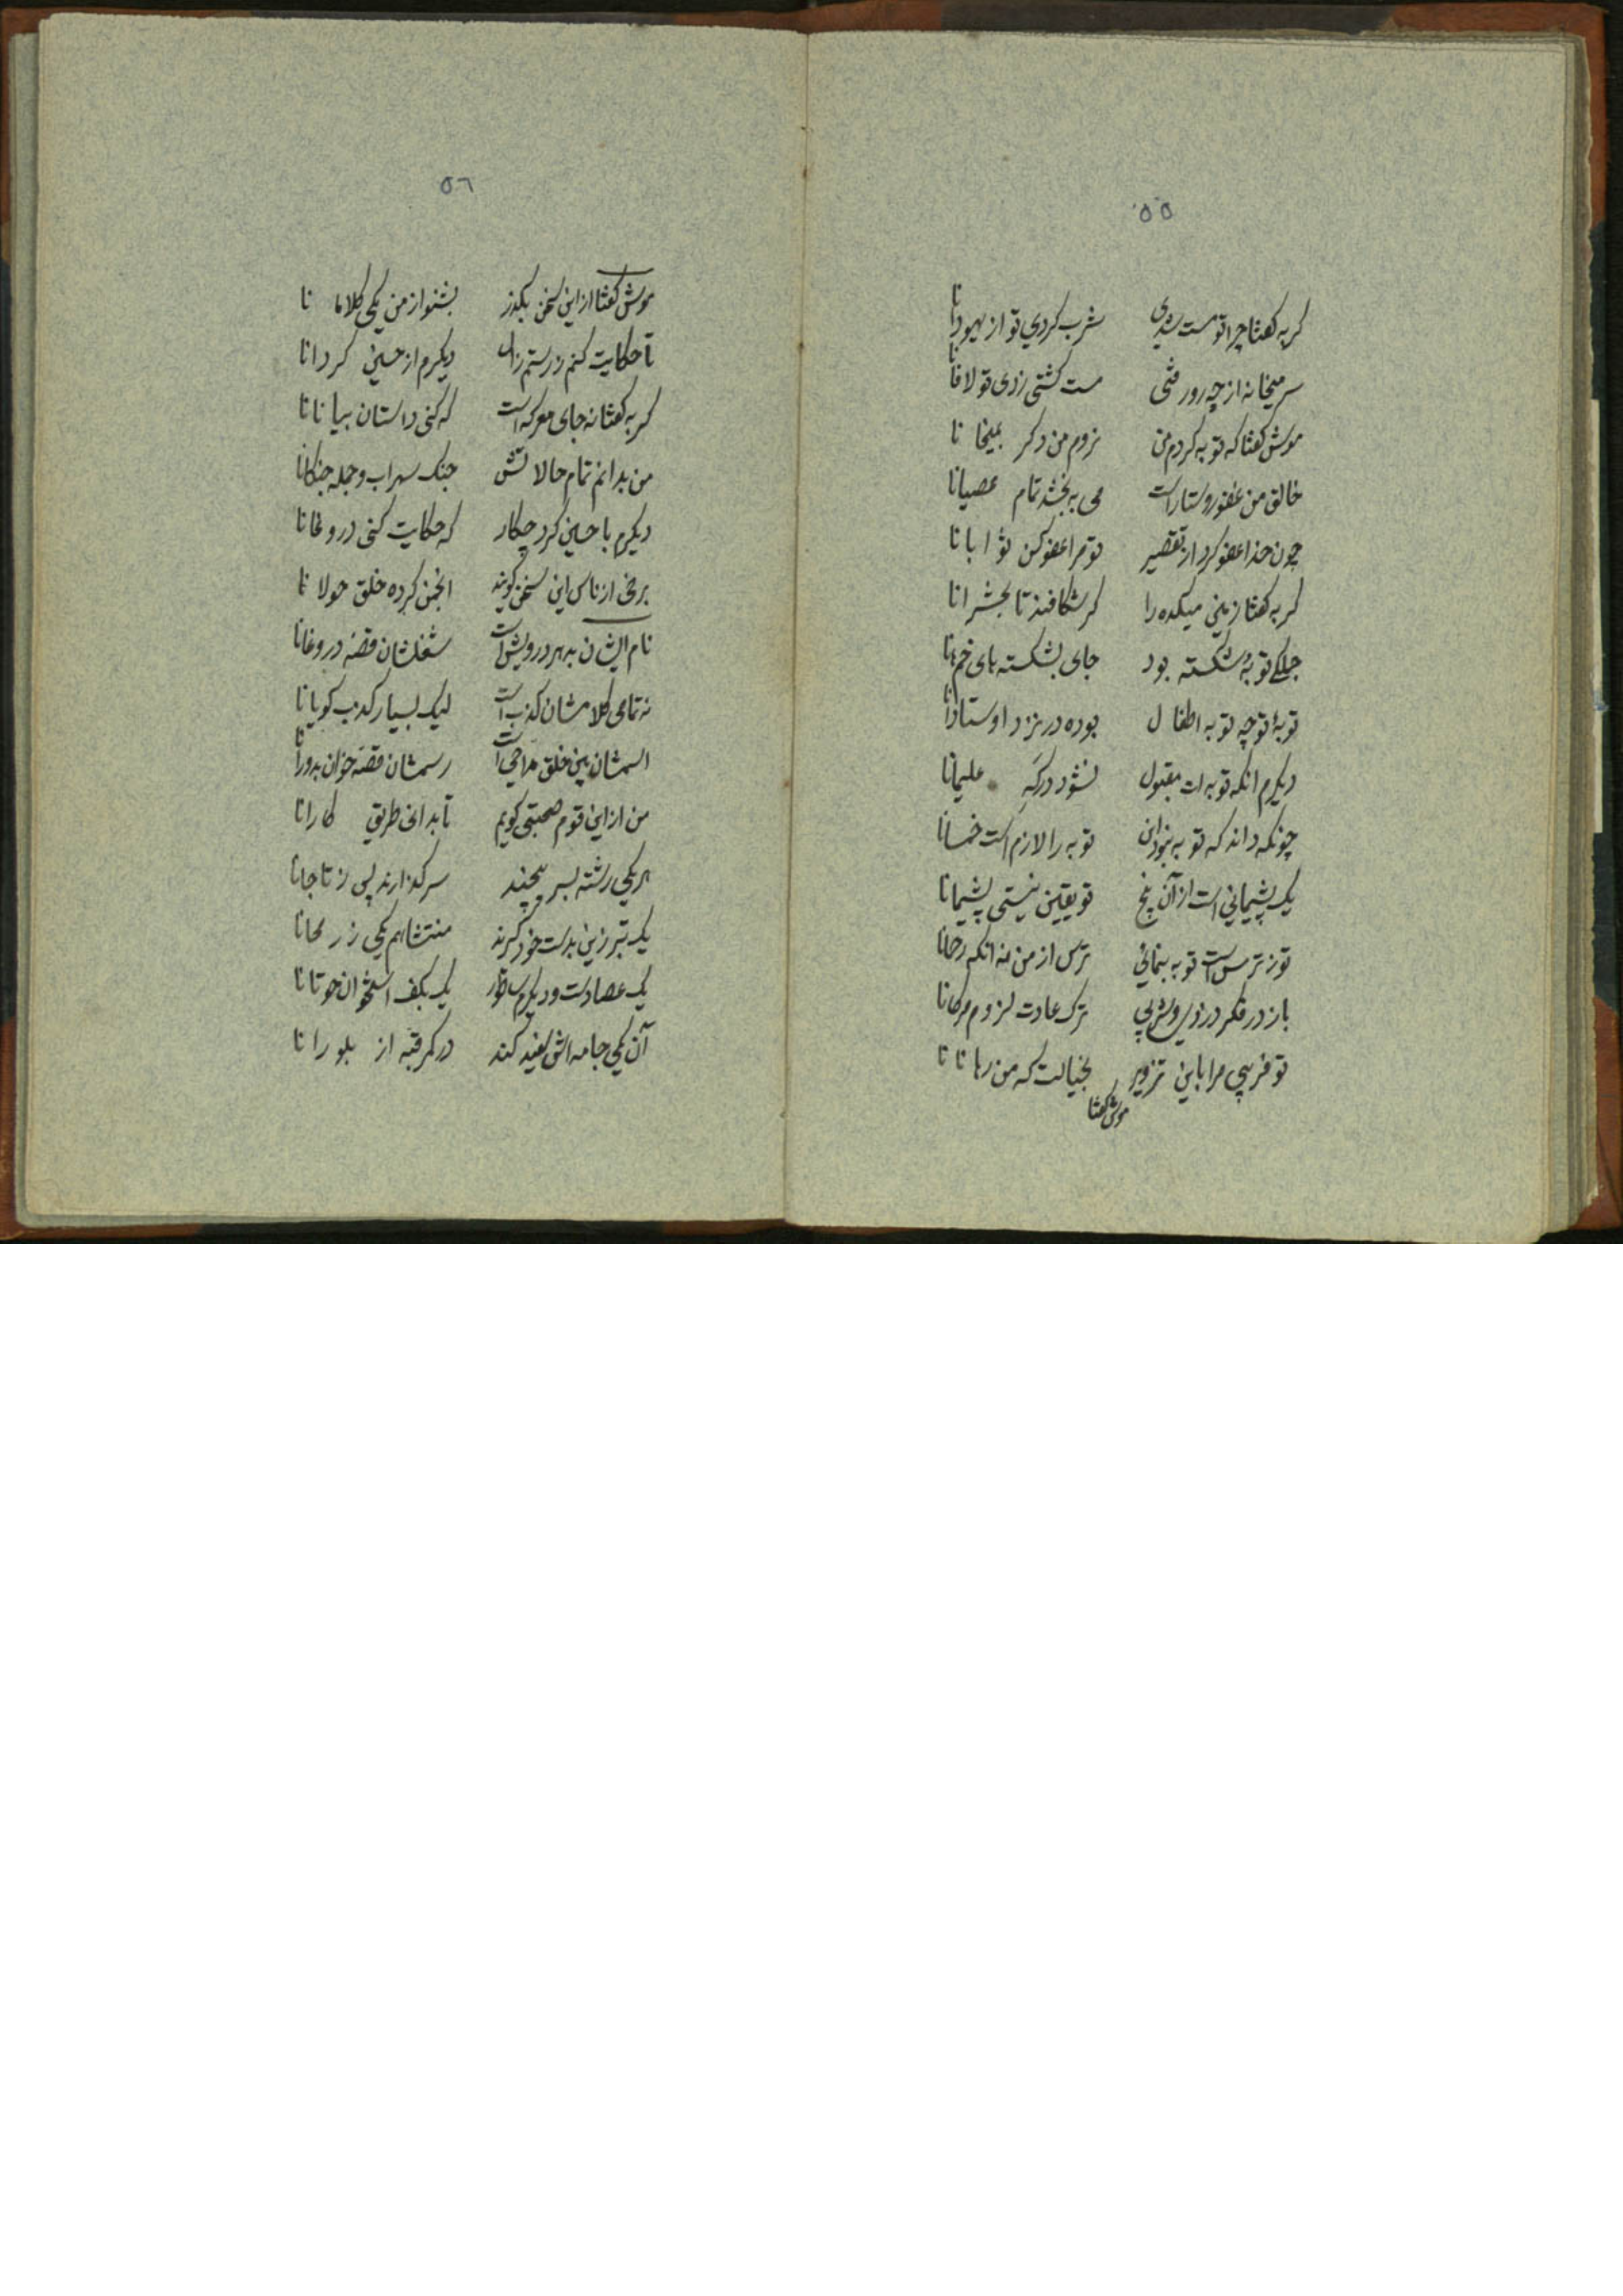 ۵۵
کربه کفتا چرا تو مست شدی شرب کردی تو از یهودانا
سر میخانه از چه رو رفتی مست کشتی زدی تو لافانا
موش کفتا که توبه کردم من نروم من دکر بمیخانا
خالق من غفور و ستار است می به بخشد تمام عصیانا
چون خدا عفو کرد از تقصیر تو مرا عفو کن ثوابانا
کربه کفتا زمین میکده را کر شکافند تا بحشرانا
جملکی توبه شکسته بود جای بشکسته های خمهانا
توبهٔ تو چه توبه اطفال بوده در نزد اوستادانا
دیکرم انکه توبه ات مقبول نشود درکه علیمانا
چونکه داند که توبه بتوان توبه را لازم است خمسانا
یک پشیمانی است از آن پنج تو یقین نیستی پشیمانا
تو ز ترس است توبه بنمائی ترس از من نه انکه رحمانا
باز در فکر دزدی و شربی ترک عادت لزوم مرکانا
تو فریبی مرا باین تزویر بخیالت که من رهانانا
موش کفتا
۵٦
موش کفتا از این سخن بکذر بشنو از من یکی کلامانا
تا حکایت کنم ز رستم زال دیکرم از حسین کردانا
کربه کفتا نه جای معرکه است که کنی داستان بیانانا
من بدانم تمام حالاتش جنک سهراب و جمله جنکانا
دیکرم با حسین کرد چکار که حکایت کنی دروغانا
برخی از ناس این سخن کویند انجمن کرده خلق حولانا
نام ایشان بدهر درویش است شغلشان قصه دروغانا
نه تمامی کلامشان کذب است لیک بسیار کذب کویانا
اسمشان بین خلق مداحی است رسمشان قصه خوان بدورانا
من از این قوم صحبتی کویم تا بدانی طریق کارانا
هر یکی رشته بسر پیچند سر کذارند پس ز تاجانا
یک تبرزین بدست خود کیرند منتشا هم یکی ز رمحانا
یک عصا دست و دیکرم ساطور یک بکف استخوان حوتانا
آن یکی جامه اش سفید کند در کمر قبه از بلورانا